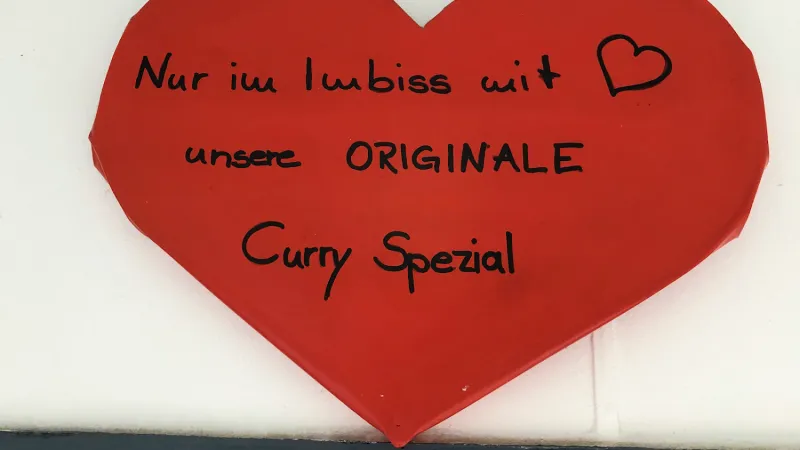 Nur im Imbiss mit ♡
unsere ORIGINALE
Curry Spezial